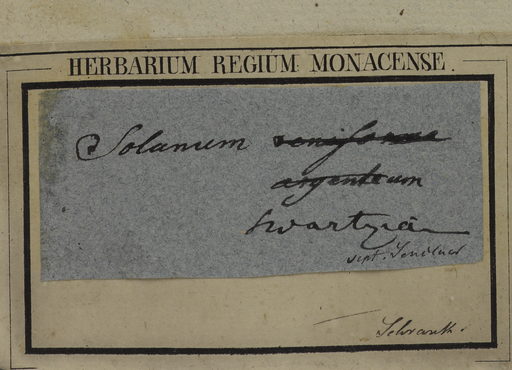 HERBARIUM REGIUM MONACENSE.
Solanum
argenteum
Swartzia
sept. Sendtner
Schrank.